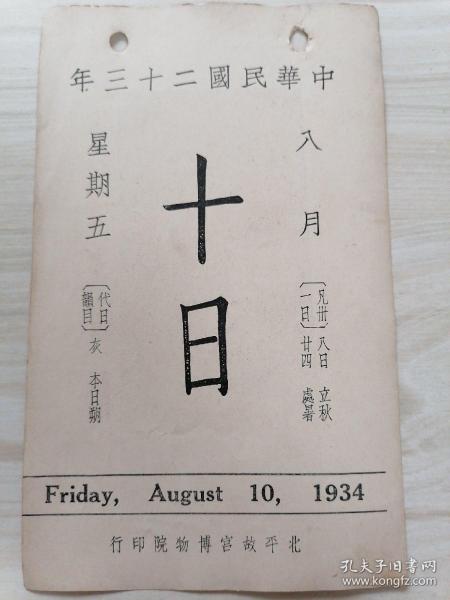 中華民國二十三年
八月
〔凡卅一日〕
八日 立秋
廿四 處暑
十日
星期五
〔代日韻目〕灰 本日朔
Friday, August 10, 1934
北平故宮博物院印行
孔夫子旧书网
www.kongfz.com